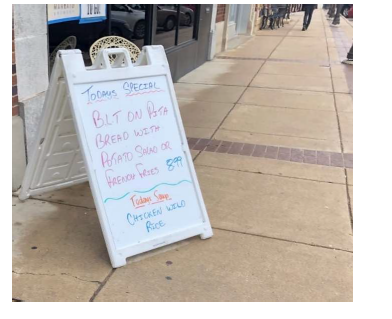 Todays Special
BLT on Pita
Bread with
Potato Salad or
French Fries 8.99
Todays Soup
Chicken Wild
Rice